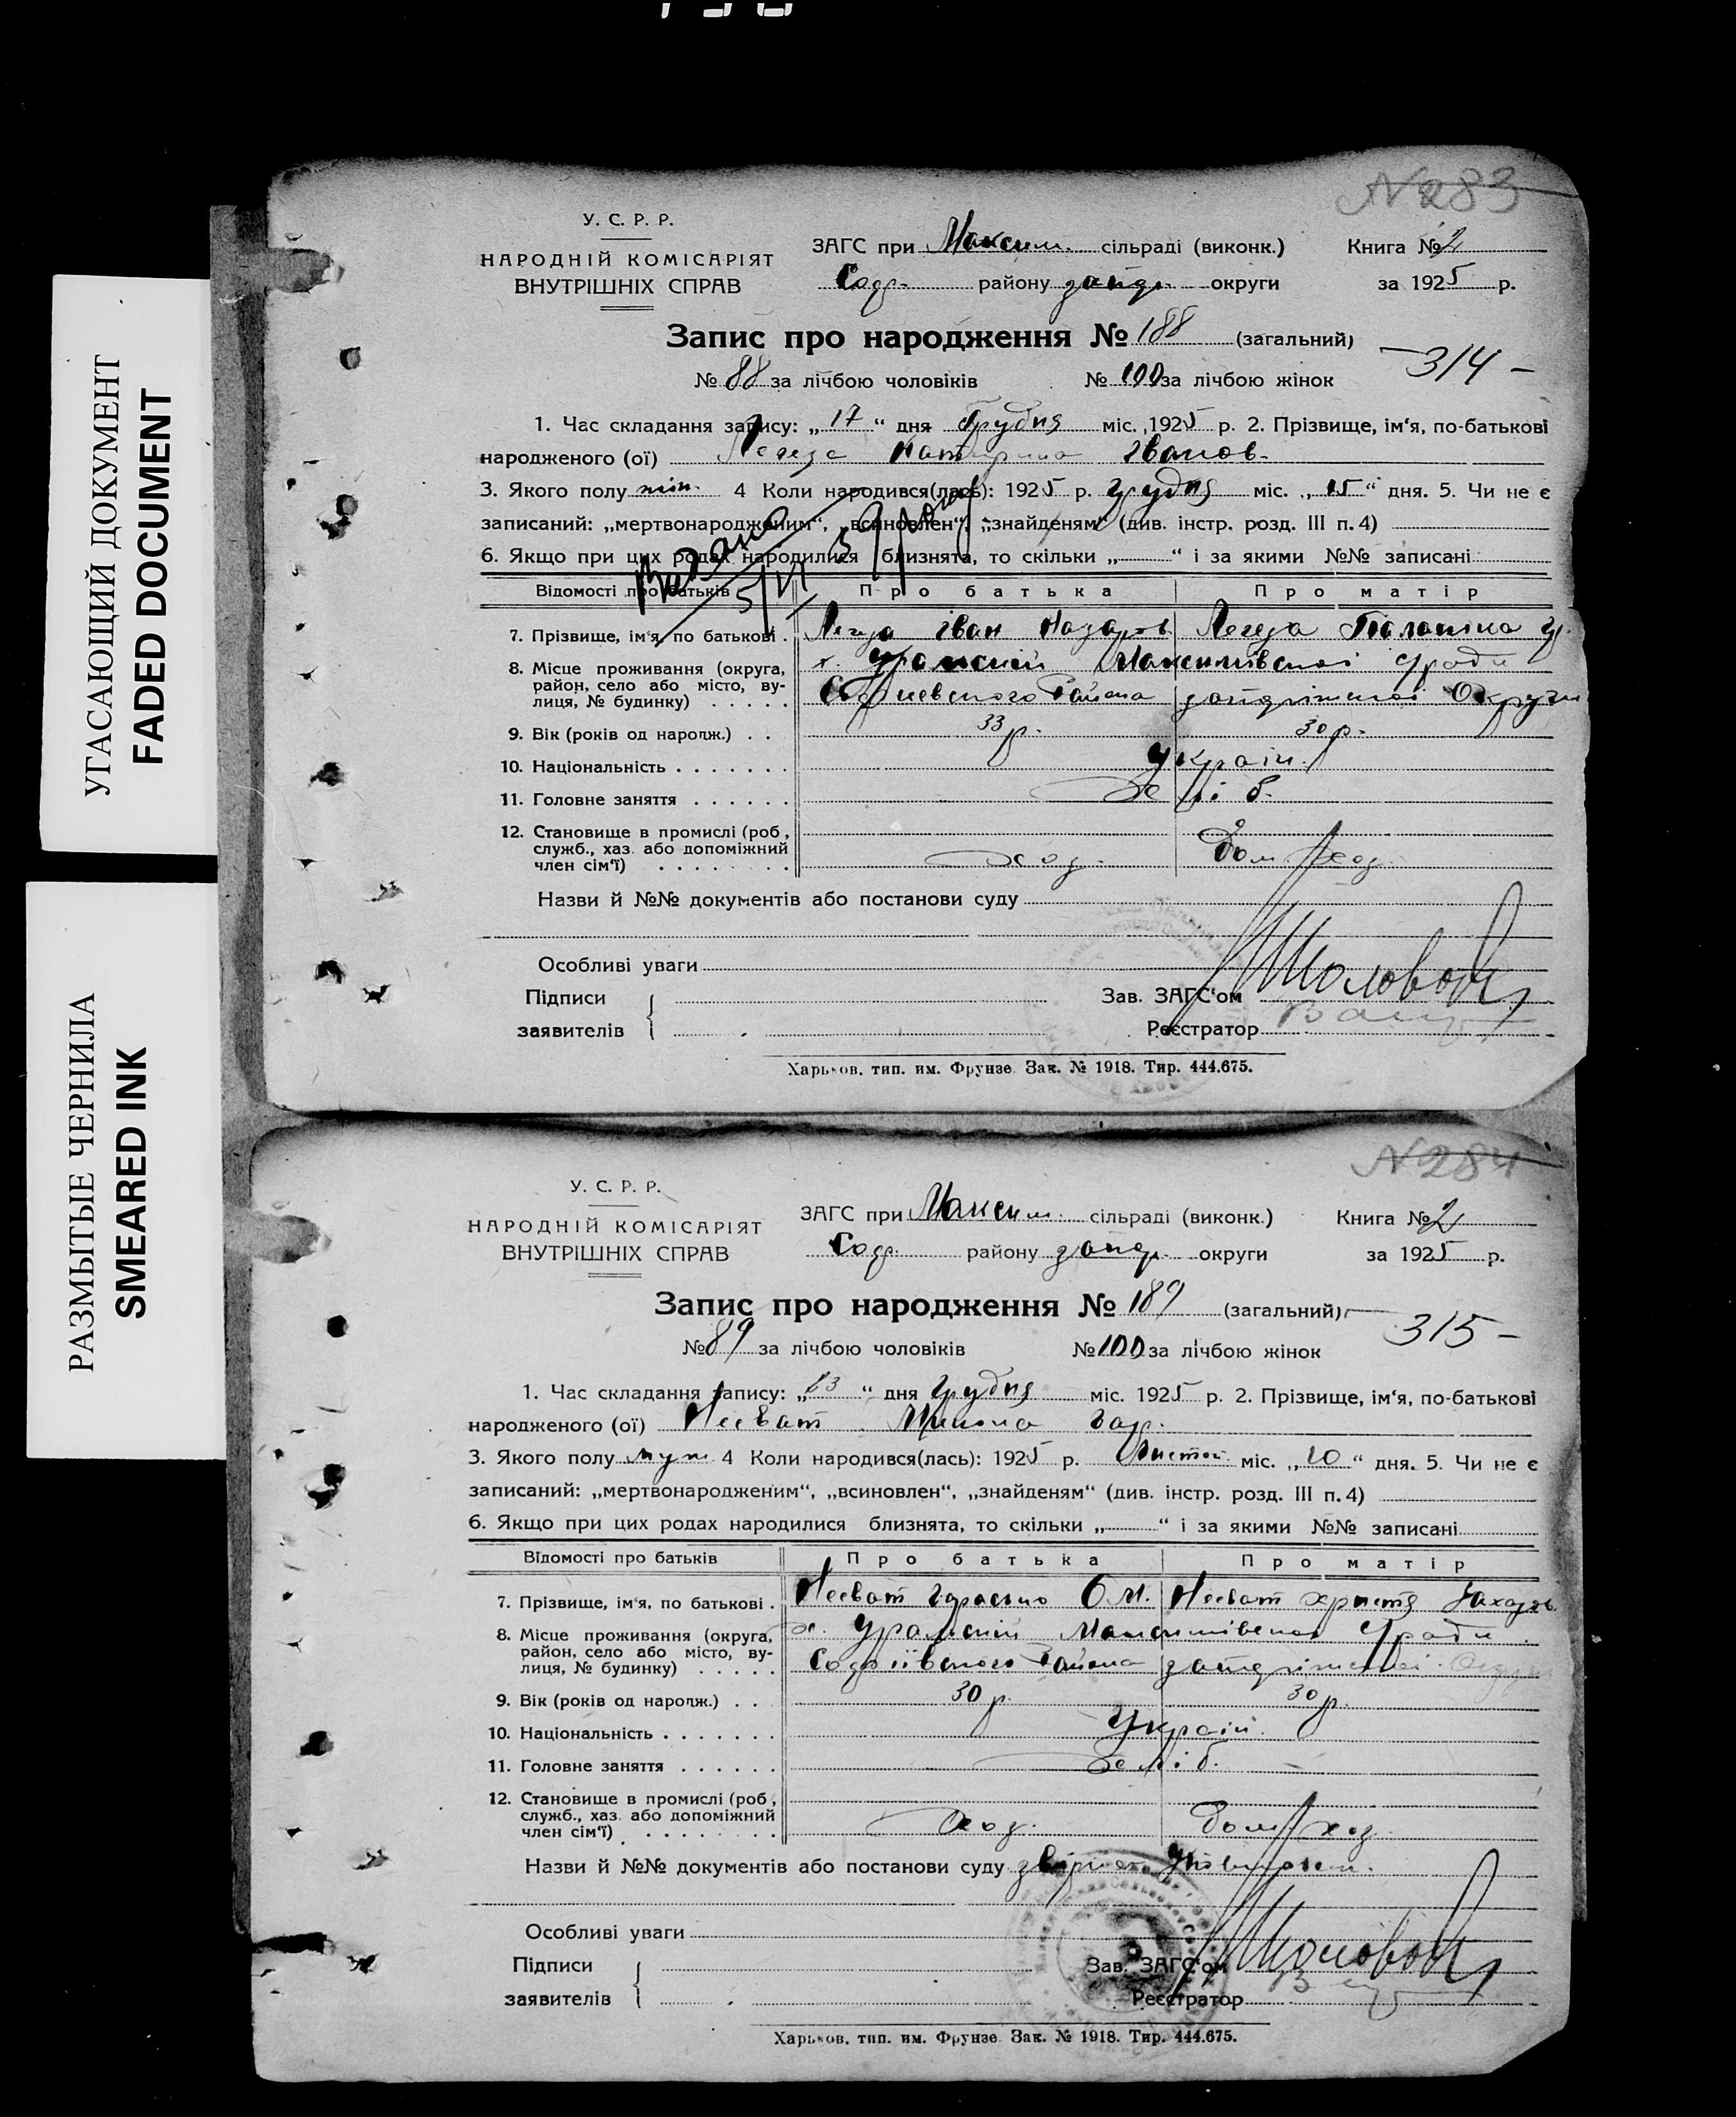 УГАСАЮЩИЙ ДОКУМЕНТ
FADED DOCUMENT
РАЗМЫТЫЕ ЧЕРНИЛА
SMEARED INK
№ 283
У. С. Р. Р.
НАРОДНІЙ КОМІСАРІЯТ
ВНУТРІШНІХ СПРАВ
ЗАГС при Максим. сільраді (виконк.) Книга № 2
Соф. району запор. округи за 1925 р.
Запис про народження № 188 (загальний)
— 314 —
№ 88 за лічбою чоловіків № 100 за лічбою жінок
1. Час складання запису: „ 17 “ дня Грудня міс. 1925 р. 2. Прізвище, ім‘я, по-батькові
народженого (ої) Легеза Катерина Іванов.
3. Якого полу жін. 4 Коли народився(лась): 1925 р. Грудня міс. „ 15 “ дня. 5. Чи не є
записаний: „мертвонародженим“, „всиновлен“, „знайденям“ (див. інстр. розд. III п. 4)
6. Якщо при цих родах народилися близнята, то скільки „ “ і за якими №№ записані
Видано
5/VI 59
Відомості про батьків Про батька Про матір
7. Прізвище, ім‘я, по батькові . Легеза Іван Назаров. Легеза Палажка
8. Місце проживання (округа, район, село або місто, вулиця, № будинку) . . . . . х. Уральский Максимівської С/ради
Софіевского Района запоріжської Округи
9. Вік (років од народж.) . . 33 р. 30 р.
10. Національність . . . . . . . Україн.
11. Головне заняття . . . . . . Хліб.
12. Становище в промислі (роб., служб., хаз. або допоміжний член сім‘ї) . . . . . . . . Хоз. Дом. хоз.
Назви й №№ документів або постанови суду
Особливі уваги
Підписи
заявителів
Зав. ЗАГС‘ом
Реєстратор
Харьков, тип. им. Фрунзе. Зак. № 1918. Тир. 444.675.
№ 284
У. С. Р. Р.
НАРОДНІЙ КОМІСАРІЯТ
ВНУТРІШНІХ СПРАВ
ЗАГС при Максим. сільраді (виконк.) Книга № 2
Соф. району запор. округи за 1925 р.
Запис про народження № 189 (загальний)
— 315 —
№ 89 за лічбою чоловіків № 100 за лічбою жінок
1. Час складання запису: „ 23 “ дня Грудня міс. 1925 р. 2. Прізвище, ім‘я, по-батькові
народженого (ої) Несват Микола Гар.
3. Якого полу муж. 4 Коли народився(лась): 1925 р. Листоп. міс. „ 20 “ дня. 5. Чи не є
записаний: „мертвонародженим“, „всиновлен“, „знайденям“ (див. інстр. розд. III п. 4)
6. Якщо при цих родах народилися близнята, то скільки „ “ і за якими №№ записані
Відомості про батьків Про батька Про матір
7. Прізвище, ім‘я, по батькові . Несват Гарасько Ом. Несват Христя Захаров.
8. Місце проживання (округа, район, село або місто, вулиця, № будинку) . . . . . х. Уральский Максимівської С/ради
Софіївского Района запоріжської Округи
9. Вік (років од народж.) . . 30 р. 30 р.
10. Національність . . . . . . . Україн.
11. Головне заняття . . . . . . Хліб.
12. Становище в промислі (роб., служб., хаз. або допоміжний член сім‘ї) . . . . . . . . Хоз. Дом. хоз.
Назви й №№ документів або постанови суду
Особливі уваги
Підписи
заявителів
Зав. ЗАГС‘ом
Реєстратор
Харьков, тип. им. Фрунзе. Зак. № 1918. Тир. 444.675.